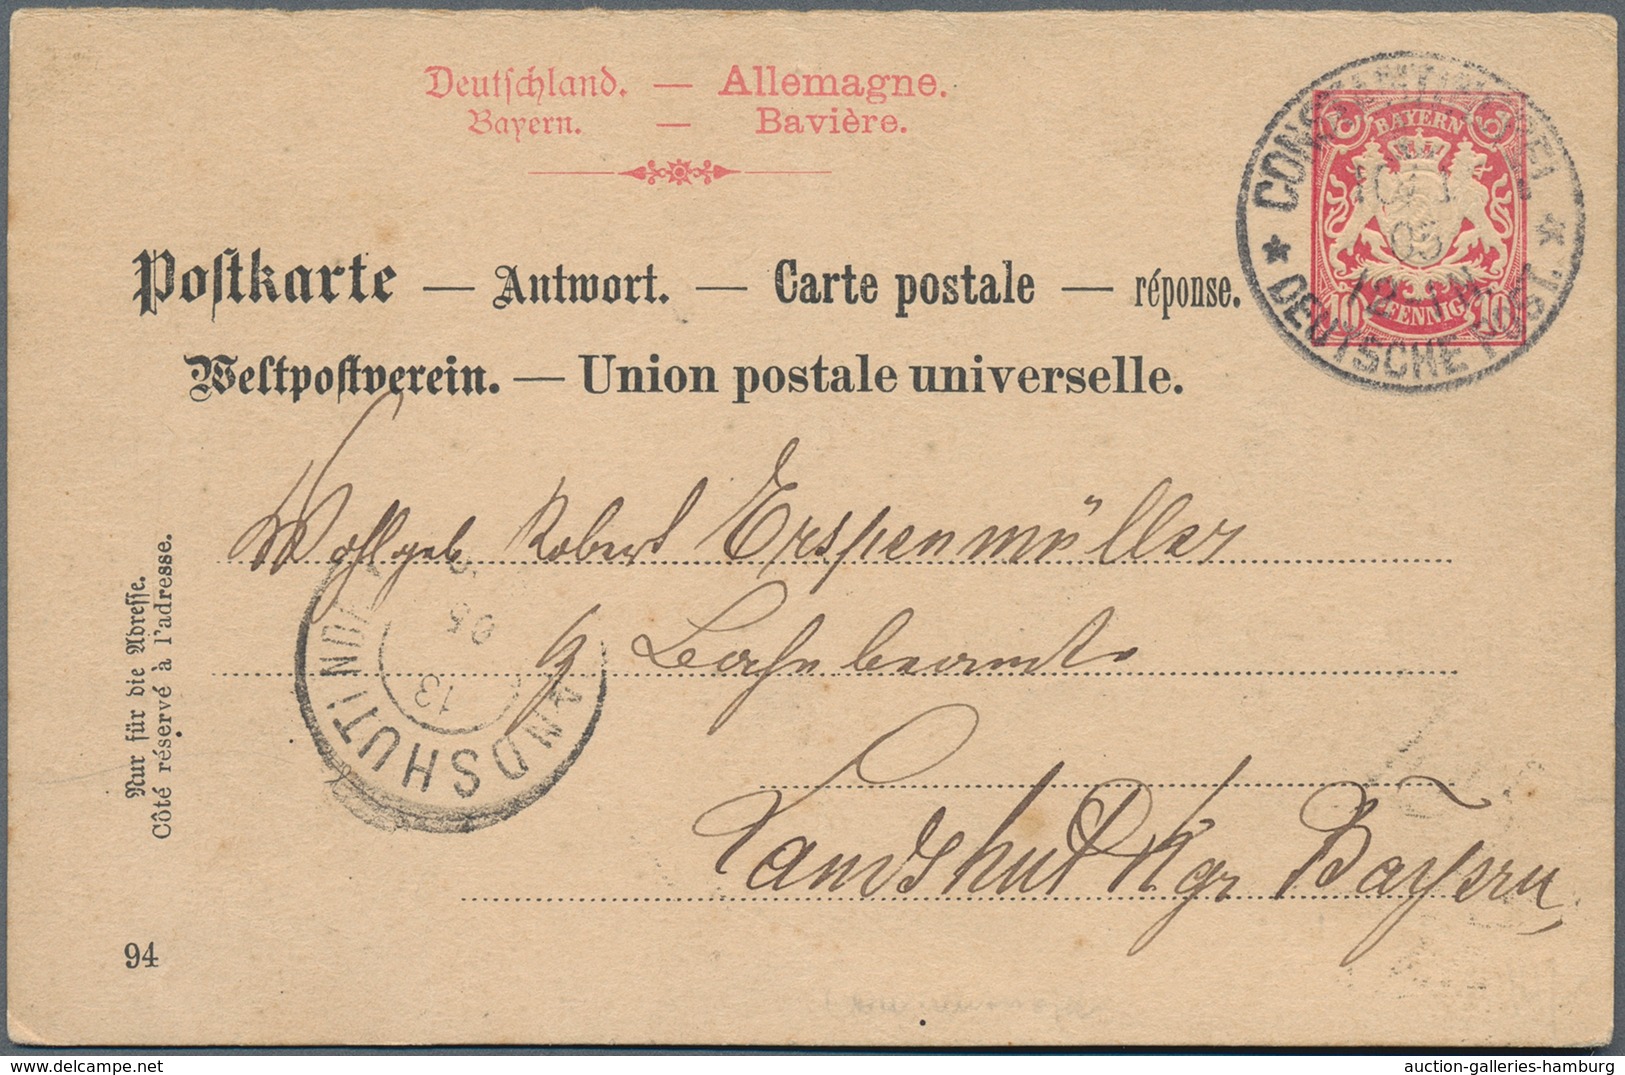 Deutschland. — Allemagne.
Bayern. — Bavière.
BAYERN
10 PFENNIG 10
CONSTANTINOPEL
10/1
95
12-1 N.
DEUTSCHE POST.
Postkarte — Antwort. — Carte postale — réponse.
Weltpostverein. — Union postale universelle.
Wohlgeb. Robert Erspenmüller
Bahnbeamte
Landshut Kgr Bayern
LANDSHUT I NDB
13
95
Nur für die Adresse.
Côté réservé à l'adresse.
94
auction-galleries-hamburg